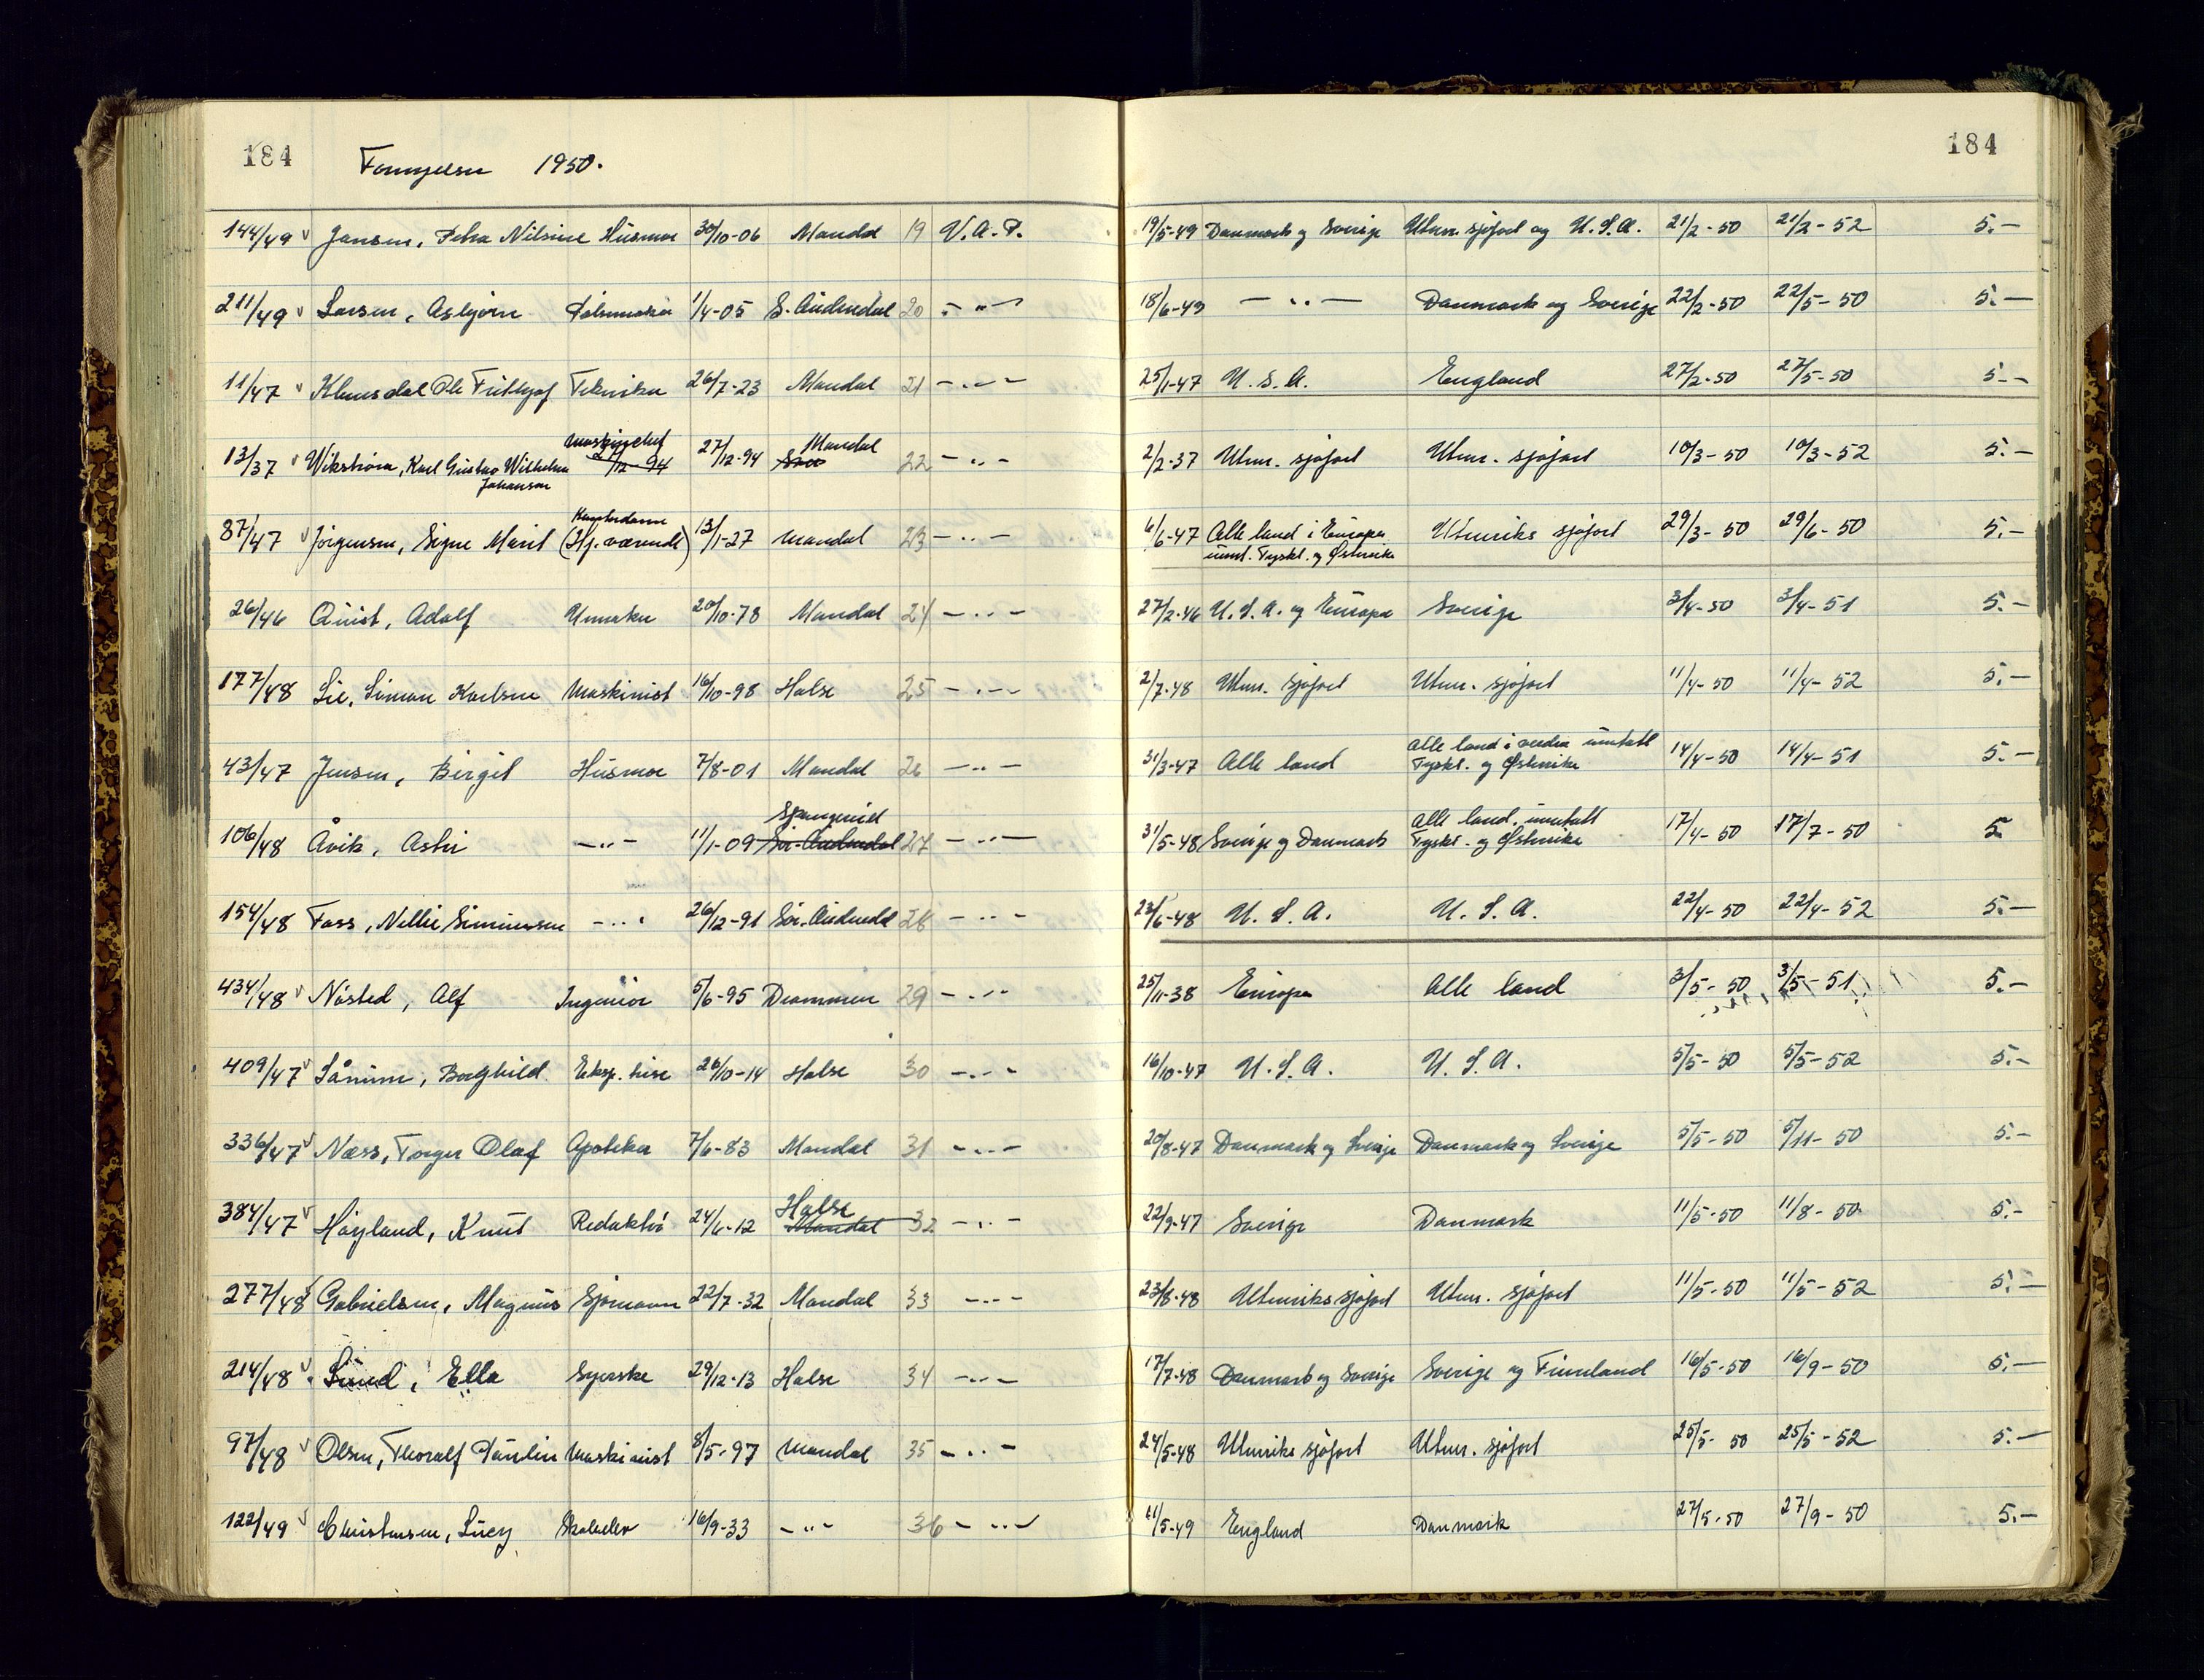 184 Fornyelser 1950. 184
144/49 v Jansen, Petra Nilsine Husmor 30/10-06 Mandal 19 V.A.P. 19/5-49 Danmark og Sverige Utenr. sjøfart og U.S.A. 21/2-50 21/2-52 5.-
211/49 v Larsen, Asbjørn 1/4-05 S. Audnedal 20 - " - 18/6-49 - " - Danmark og Sverige 22/2-50 22/5-50 5.-
11/47 v Klemsdal Ole Fritthjof Tekniker 26/7-23 Mandal 21 - " - 25/1-47 U.S.A. England 27/2-50 27/5-50 5.-
13/37 v Wikstrøm, Karl Gustav Wilhelm Johanson maskinchef 27/12-94 27/12-94 Mandal 22 - " - 2/2-37 Utenr. sjøfart Utenr. sjøfart 10/3-50 10/3-52 5.-
87/47 v Jørgensen, Signe Marit Kontordame (Hj. værende) 13/1-27 Mandal 23 - " - 6/6-47 Alle land i Europa unnt. Tyskl. og Østerrike Utenriks sjøfart 29/3-50 29/6-50 5.-
26/46 Quist, Adolf Urmaker 20/10-78 Mandal 24 - " - 27/2-46 U.S.A. og Europa Sverige 3/4-50 3/4-51 5.-
177/48 Lie, Simon Karlsen Maskinist 16/10-98 Halse 25 - " - 2/7-48 Utenr. sjøfart Utenr. sjøfart 11/4-50 11/4-52 5.-
43/47 Jensen, Birgit Husmor 7/8-01 Mandal 26 - " - 31/3-47 Alle land Alle land i verden unntatt Tyskl. og Østerrike 14/4-50 14/4-51 5.-
106/48 Åvik, Astri - " - 11/1-09 Spangereid Sør-Audnedal 27 - " - 31/5-48 Sverige og Danmark Alle land, unntatt Tyskl. og Østerrike 17/4-50 17/7-50 5.
154/48 Foss, Nellie Simonsen - " - 26/12-91 Sør-Audnedal 28 - " - 23/6-48 U.S.A. U.S.A. 22/4-50 22/4-52 5.-
434/48 v Nøsted, Alf Ingeniør 5/6-95 Drammen 29 - " - 25/11-38 Europa Alle land 3/5-50 3/5-51 5.-
409/47 v Sånum, Borghild Eksp. trise 26/10-14 Halse 30 - " - 16/10-47 U.S.A. U.S.A. 5/5-50 5/5-52 5.-
336/47 v Næss, Torger Olaf Apoteker 7/6-83 Mandal 31 - " - 20/8-47 Danmark og Sverige Danmark og Sverige 5/5-50 5/11-50 5.-
384/47 v Høyland, Knut Redaktør 24/6-12 Halse Mandal 32 - " - 22/9-47 Sverige Danmark 11/5-50 11/8-50 5.-
277/48 v Gabrielsen, Magnus Sjømann 22/7-32 Mandal 33 - " - 23/8-48 Utenriks sjøfart Utenr. sjøfart 11/5-50 11/5-52 5.-
214/48 v Lund, Ella Syerske 29/12-13 Halse 34 - " - 17/7-48 Danmark og Sverige Sverige og Finnland 16/5-50 16/9-50 5.-
97/48 v Olsen, Thoralf Paulin Maskinist 8/5-97 Mandal 35 - " - 24/5-48 Utenriks sjøfart Utenr. sjøfart 25/5-50 25/5-52 5.-
122/49 v Christensen, Lucy Skoleelev 16/9-33 - " - 36 - " - 11/5-49 England Danmark 27/5-50 27/9-50 5.-